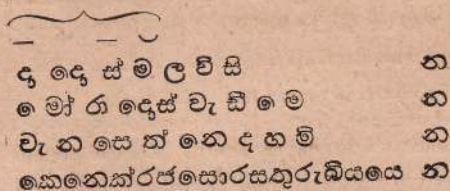 — — ⏑
ද දෙ ස් ම ල වි සි න
මෝ රා දෙස් වැ ඩී මෙ න
වැ න සෙ ත් නෙ ද හ ම් න
කෙනෙක්රජසොරසතුරුබියයෙ න